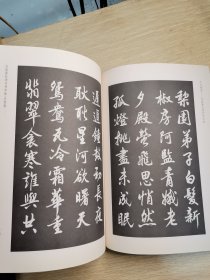 梨園弟子白髮新
椒房阿監青娥老
夕殿螢飛思悄然
孤燈挑盡未成眠
遲遲鐘鼓初長夜
耿耿星河欲曙天
鴛鴦瓦冷霜華重
翡翠衾寒誰與共